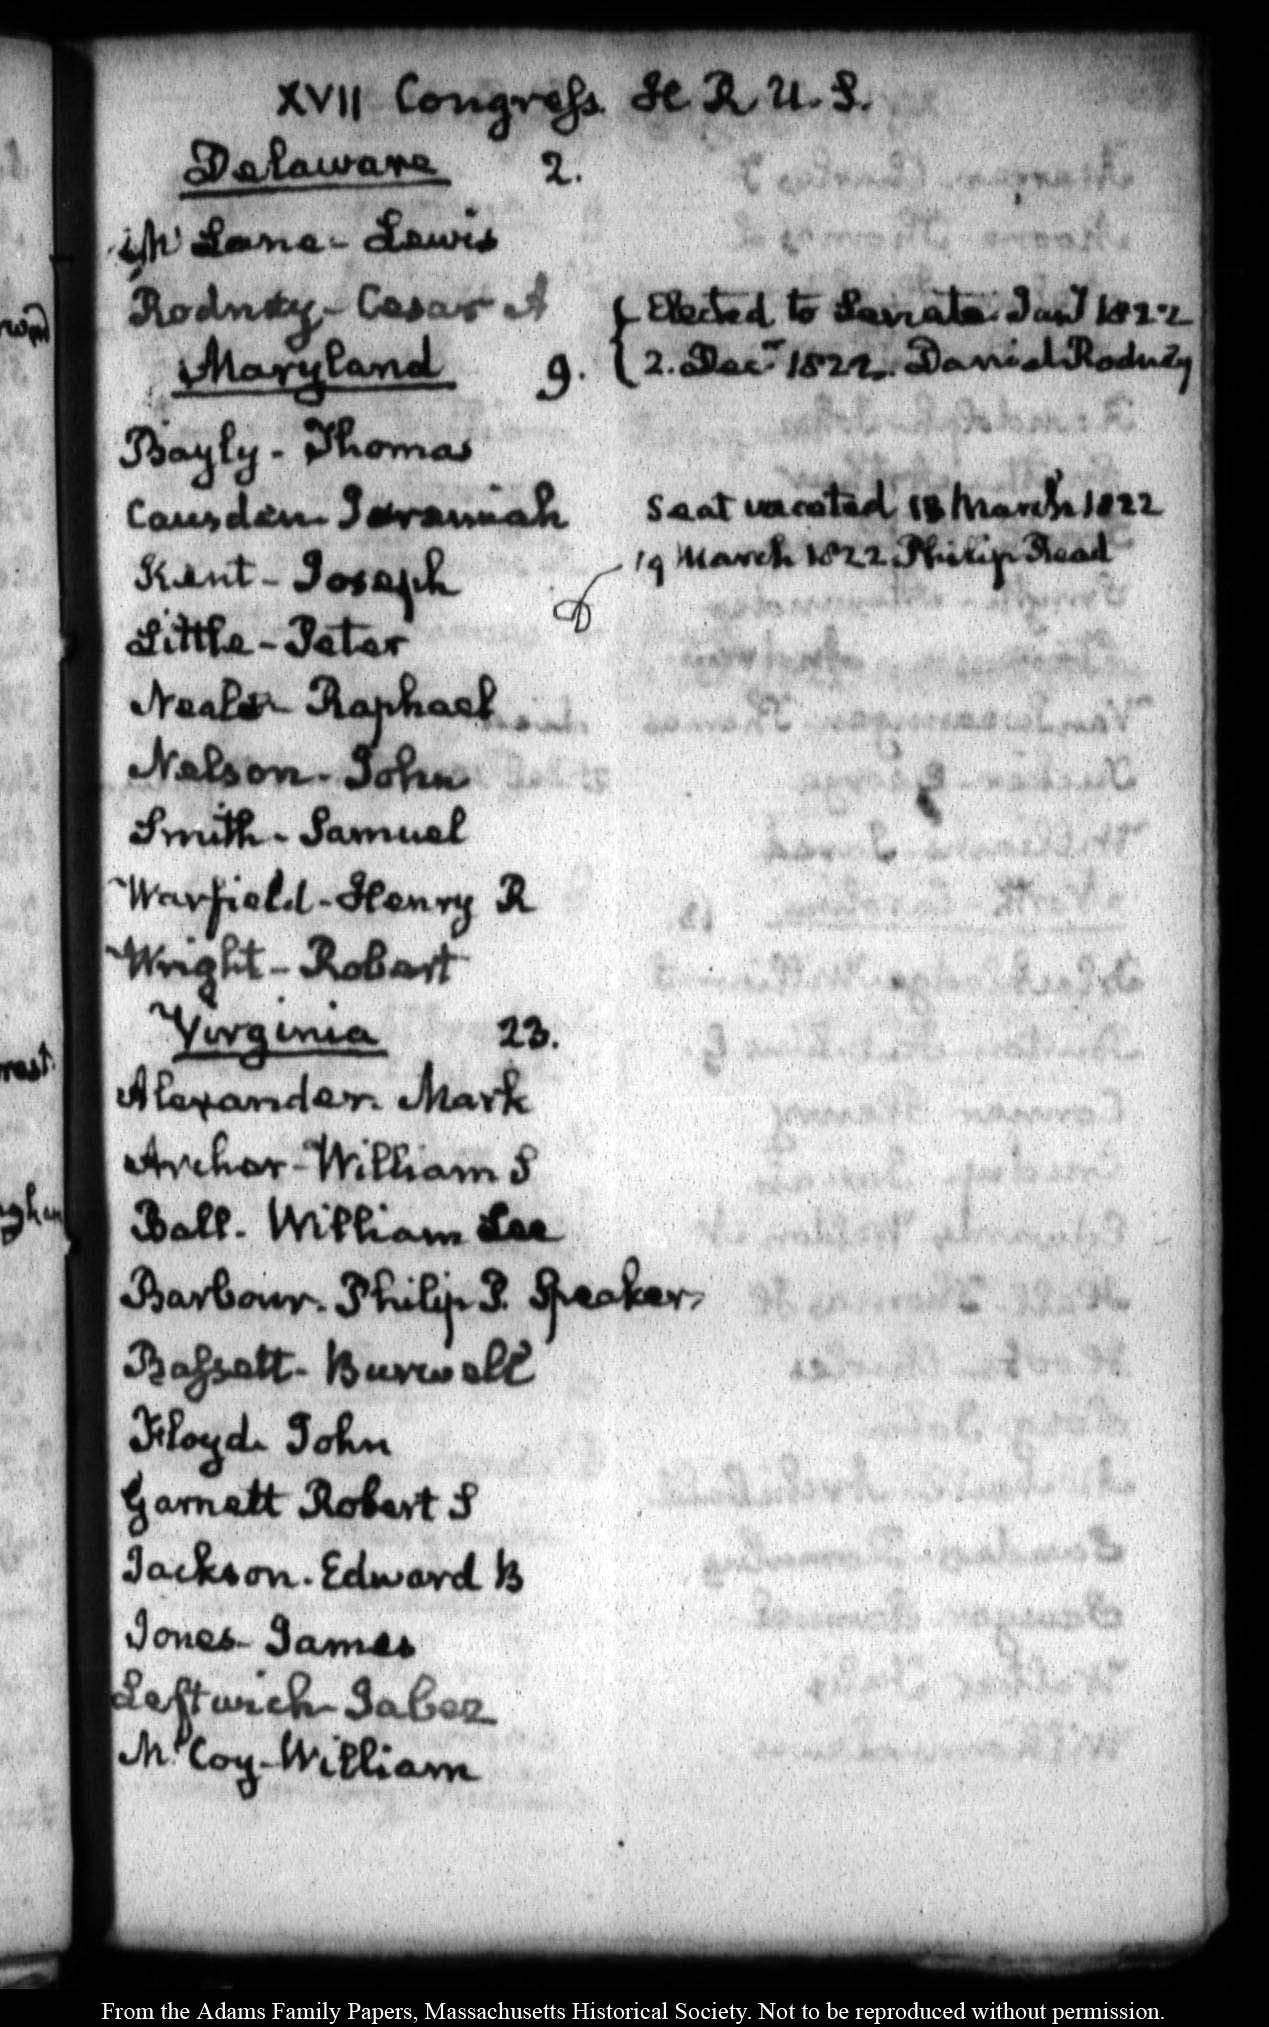 XVII Congress. H R U. S.
Delaware 2.
Mc Lane - Lewis
Rodney - Cesar A { Elected to Senate Jany 1822
Maryland 9. { 2. Decr 1822. Daniel Rodney
Bayly - Thomas
Causden - Jeremiah Seat vacated 18 March 1822
Kent - Joseph 19 March 1822 Philip Read
Little - Peter
Neale - Raphael
Nelson - John
Smith - Samuel
Warfield - Henry R
Wright - Robert
Virginia 23.
Alexander. Mark
Archer - William S
Ball. William Lee
Barbour. Philip P. Speaker
Bassett - Burwell
Floyd. John
Garnett Robert S
Jackson. Edward B
Jones - James
Leftwich - Jabez
Mc Coy - William
From the Adams Family Papers, Massachusetts Historical Society. Not to be reproduced without permission.